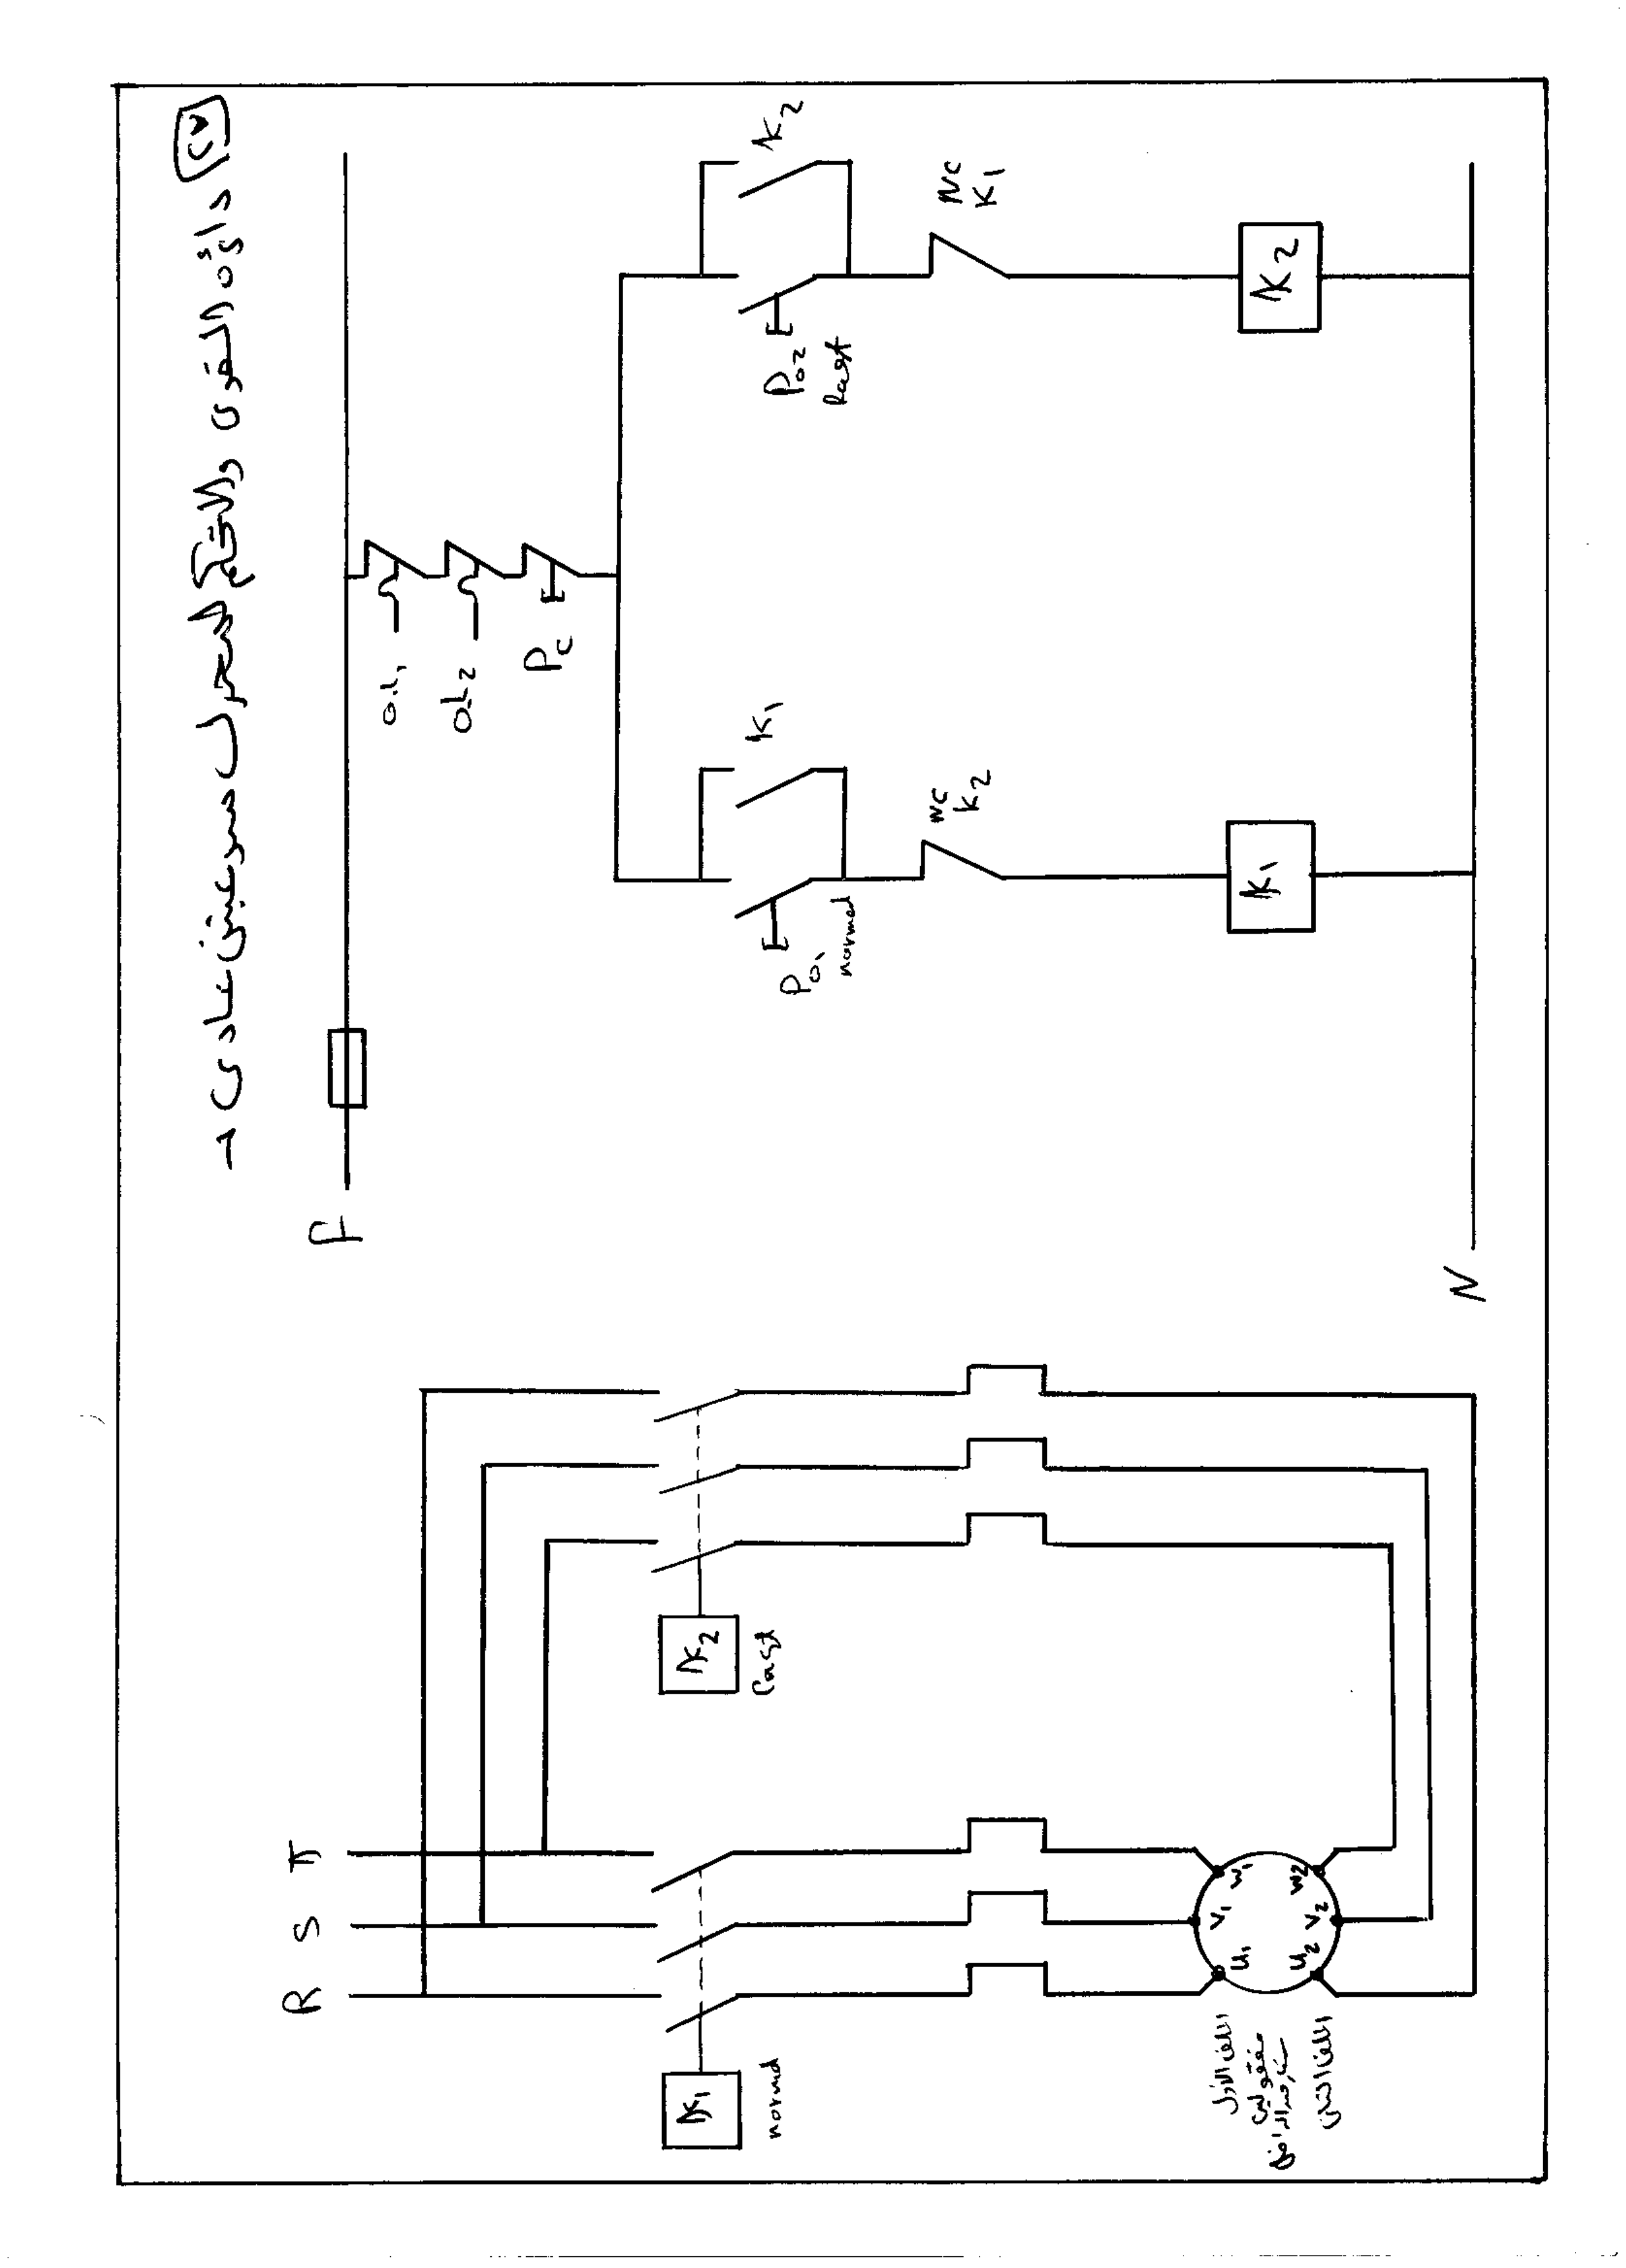 ٧ دائرة القوى والتحكم لمحرك سرعتين عادى
R
S
T
K1
normal
K2
fast
U1
V1
W1
U2
V2
W2
اللف الأول
اللف الثانى
F
O.L1
O.L2
Pc
Po1
normal
K1
NC
K2
K1
Po2
fast
K2
NC
K1
K2
N